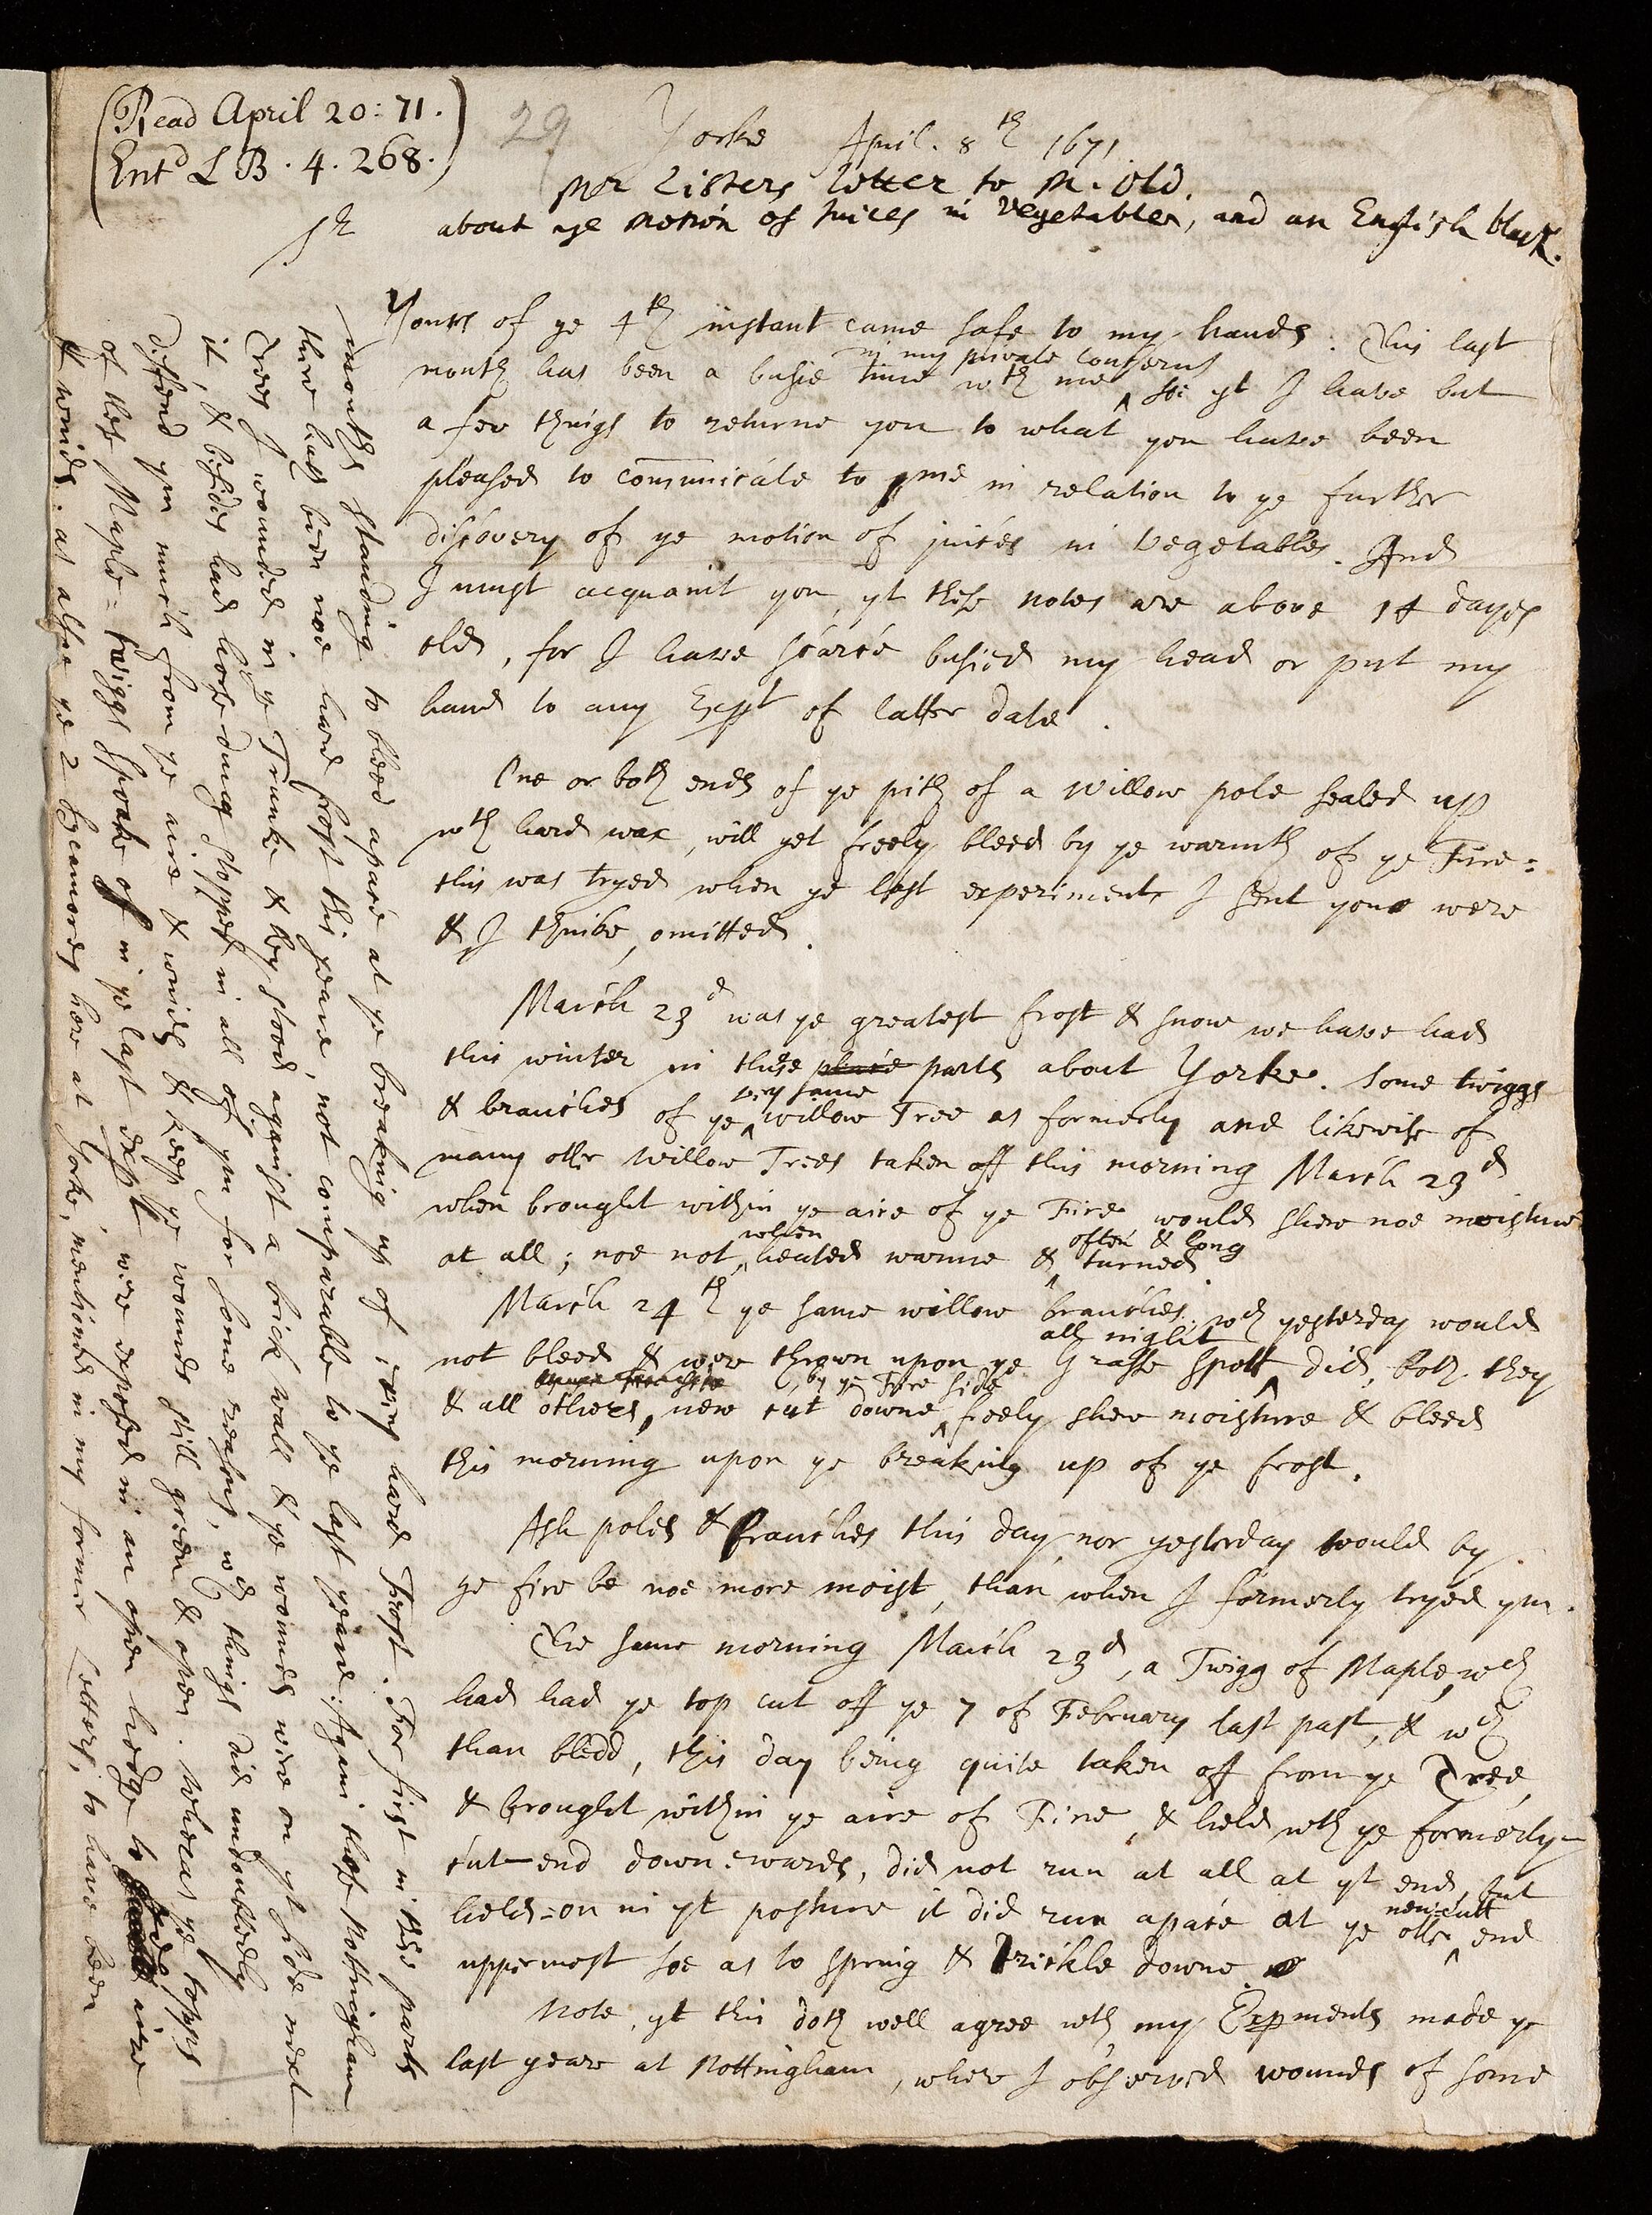 (Read April 20: 71.)
Entd L B . 4. 268.
29
Yorke April. 8th 1671
Mr Listers letter to M. Old.
about ye motion of juices in Vegetables, and an English black.
Sr
Yours of ye 4th instant came safe to my hands. This last
in my private concerns
month has been a busie time wth me soe yt I have but
a few things to returne you to what you have been
pleased to communicate to me in relation to ye further
discovery of ye motion of juices in Vegetables. And
I must acquaint you, yt these notes are above 14 dayes
old, for I have scarce busied my head or put my
hand to any Exppt of latter date.
One or both ends of ye pith of a Willow pole sealed up
wth hard wax, will yet freely bleed by ye warmth of ye Fire:
this was tryed when ye last experiments I sent you were
& I thinke, omitted.
March 23d was ye greatest frost & snow we have had
this winter in these place parts about Yorke. some twiggs
very same
& branches of ye willow Tree as formerly and likewise of
many other Willow Trees taken off this morning March 23d
when brought within ye aire of ye Fire would shew noe moisture
when often & long
at all; noe not, heated warme & turned
March 24th ye same willow branches, wch yesterday would
all night
not bleed & were throwen upon ye Grasse spott, did, both they
by ye Fire side
& all others, new cut downe freely shew moisture & bleed
this morning upon ye breaking up of ye frost.
Ash poles & branches this day, nor yesterday would by
ye fire be noe more moist, than when I formerly tryed ym.
The same morning March 23d, a Twigg of Maple, wch
had had ye top cut off ye 7 of February last past, & wch
than bledd, this day being quite taken off from ye Tree,
& brought within ye aire of Fire, & held wth ye formerly-
cut-end downewards, did not run at all at yt end, but
new-cutt
held=on in yt posture it did run apace at ye other end
uppermost soe as to spring & trickle downe.
Note, yt this doth well agree wth my Expments made ye
last yeare at Nottingham, where I observed wounds of some
months standing to bleed apace at ye breaking up of every hard Frost. For first in these parts
there has been noe hard frost this yeare, not comparable to ye last yeare: Again those Nottingham
Trees I wounded in ye Trunke & they stood against a brick wall & ye wounds were on yt side next
it, & besides had horse dung stopped in all of ym for some reasons, wch things did undoubtedly
deffend ym much from ye aire & winds & keep ye wounds still green & open. Wheras ye topps
of these Maple=twiggs spoake of in ye last Exppt were exposed in an open hedge to ye aire
& winds: as alsoe ye 2 Sycamores here at Yorke, mentioned in my former Letters, to have been